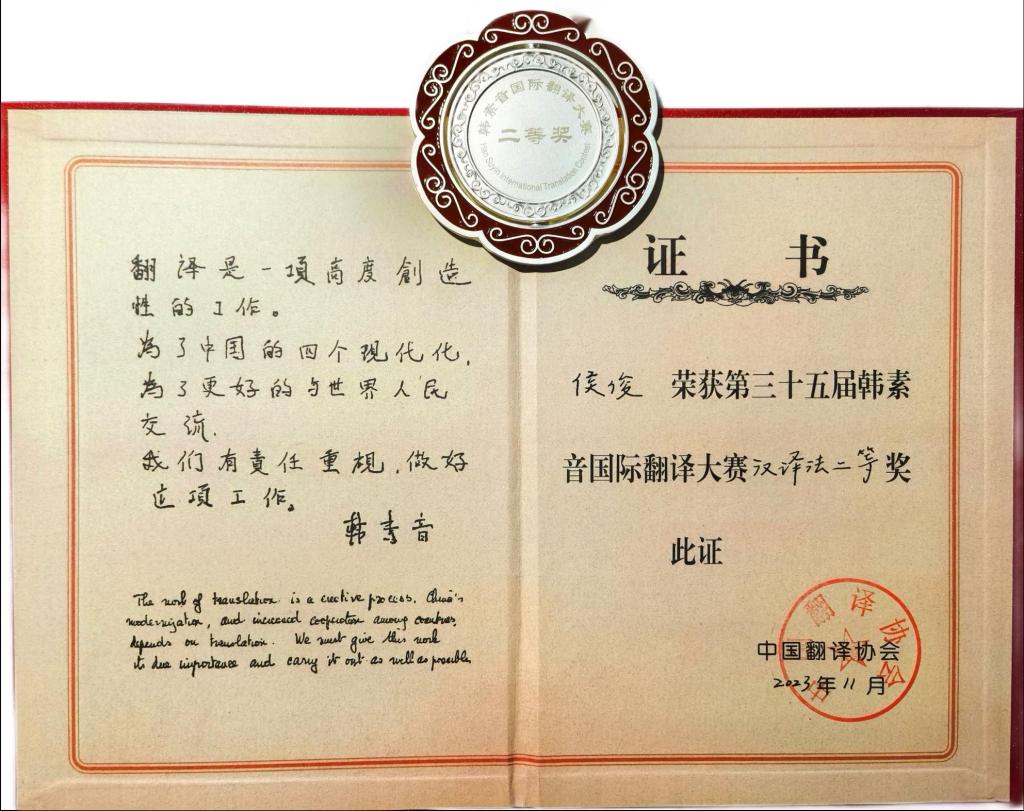 韩素音国际翻译大赛
二等奖
Han Suyin International Translation Contest
翻译是一項高度創造
性的工作。
為了中国的四个现代化,
為了更好的与世界人民
交流.
我们有責任重視,做好
这項工作。
韩素音
The work of translation is a creative process. China's
modernization, and increased cooperation among countries,
depends on translation. We must give this work
its due importance and carry it out as well as possible.
证书
侯俊 荣获第三十五届韩素
音国际翻译大赛汉译法二等奖
此证
中国翻译协会
中国翻译协会
2023年11月